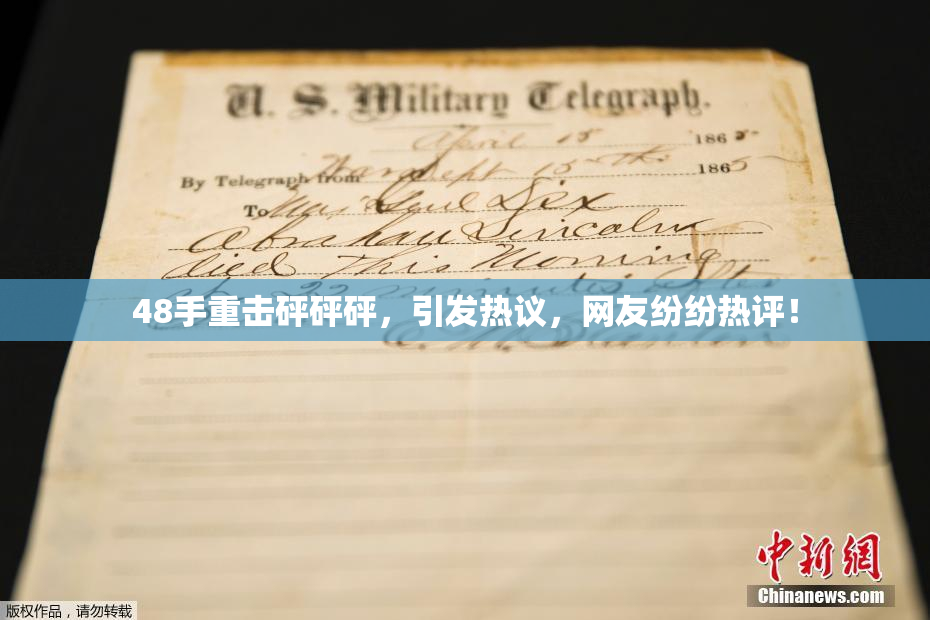 U. S. Military Telegraph.
April 15 1865
By Telegraph from War Dept 15th 1865
To Maj Genl Dix
Abraham Lincoln
died This Morning
at 22 minutes after
48手重击砰砰砰，引发热议，网友纷纷热评！
E. M. Stanton
中新网
Chinanews.com
版权作品，请勿转载